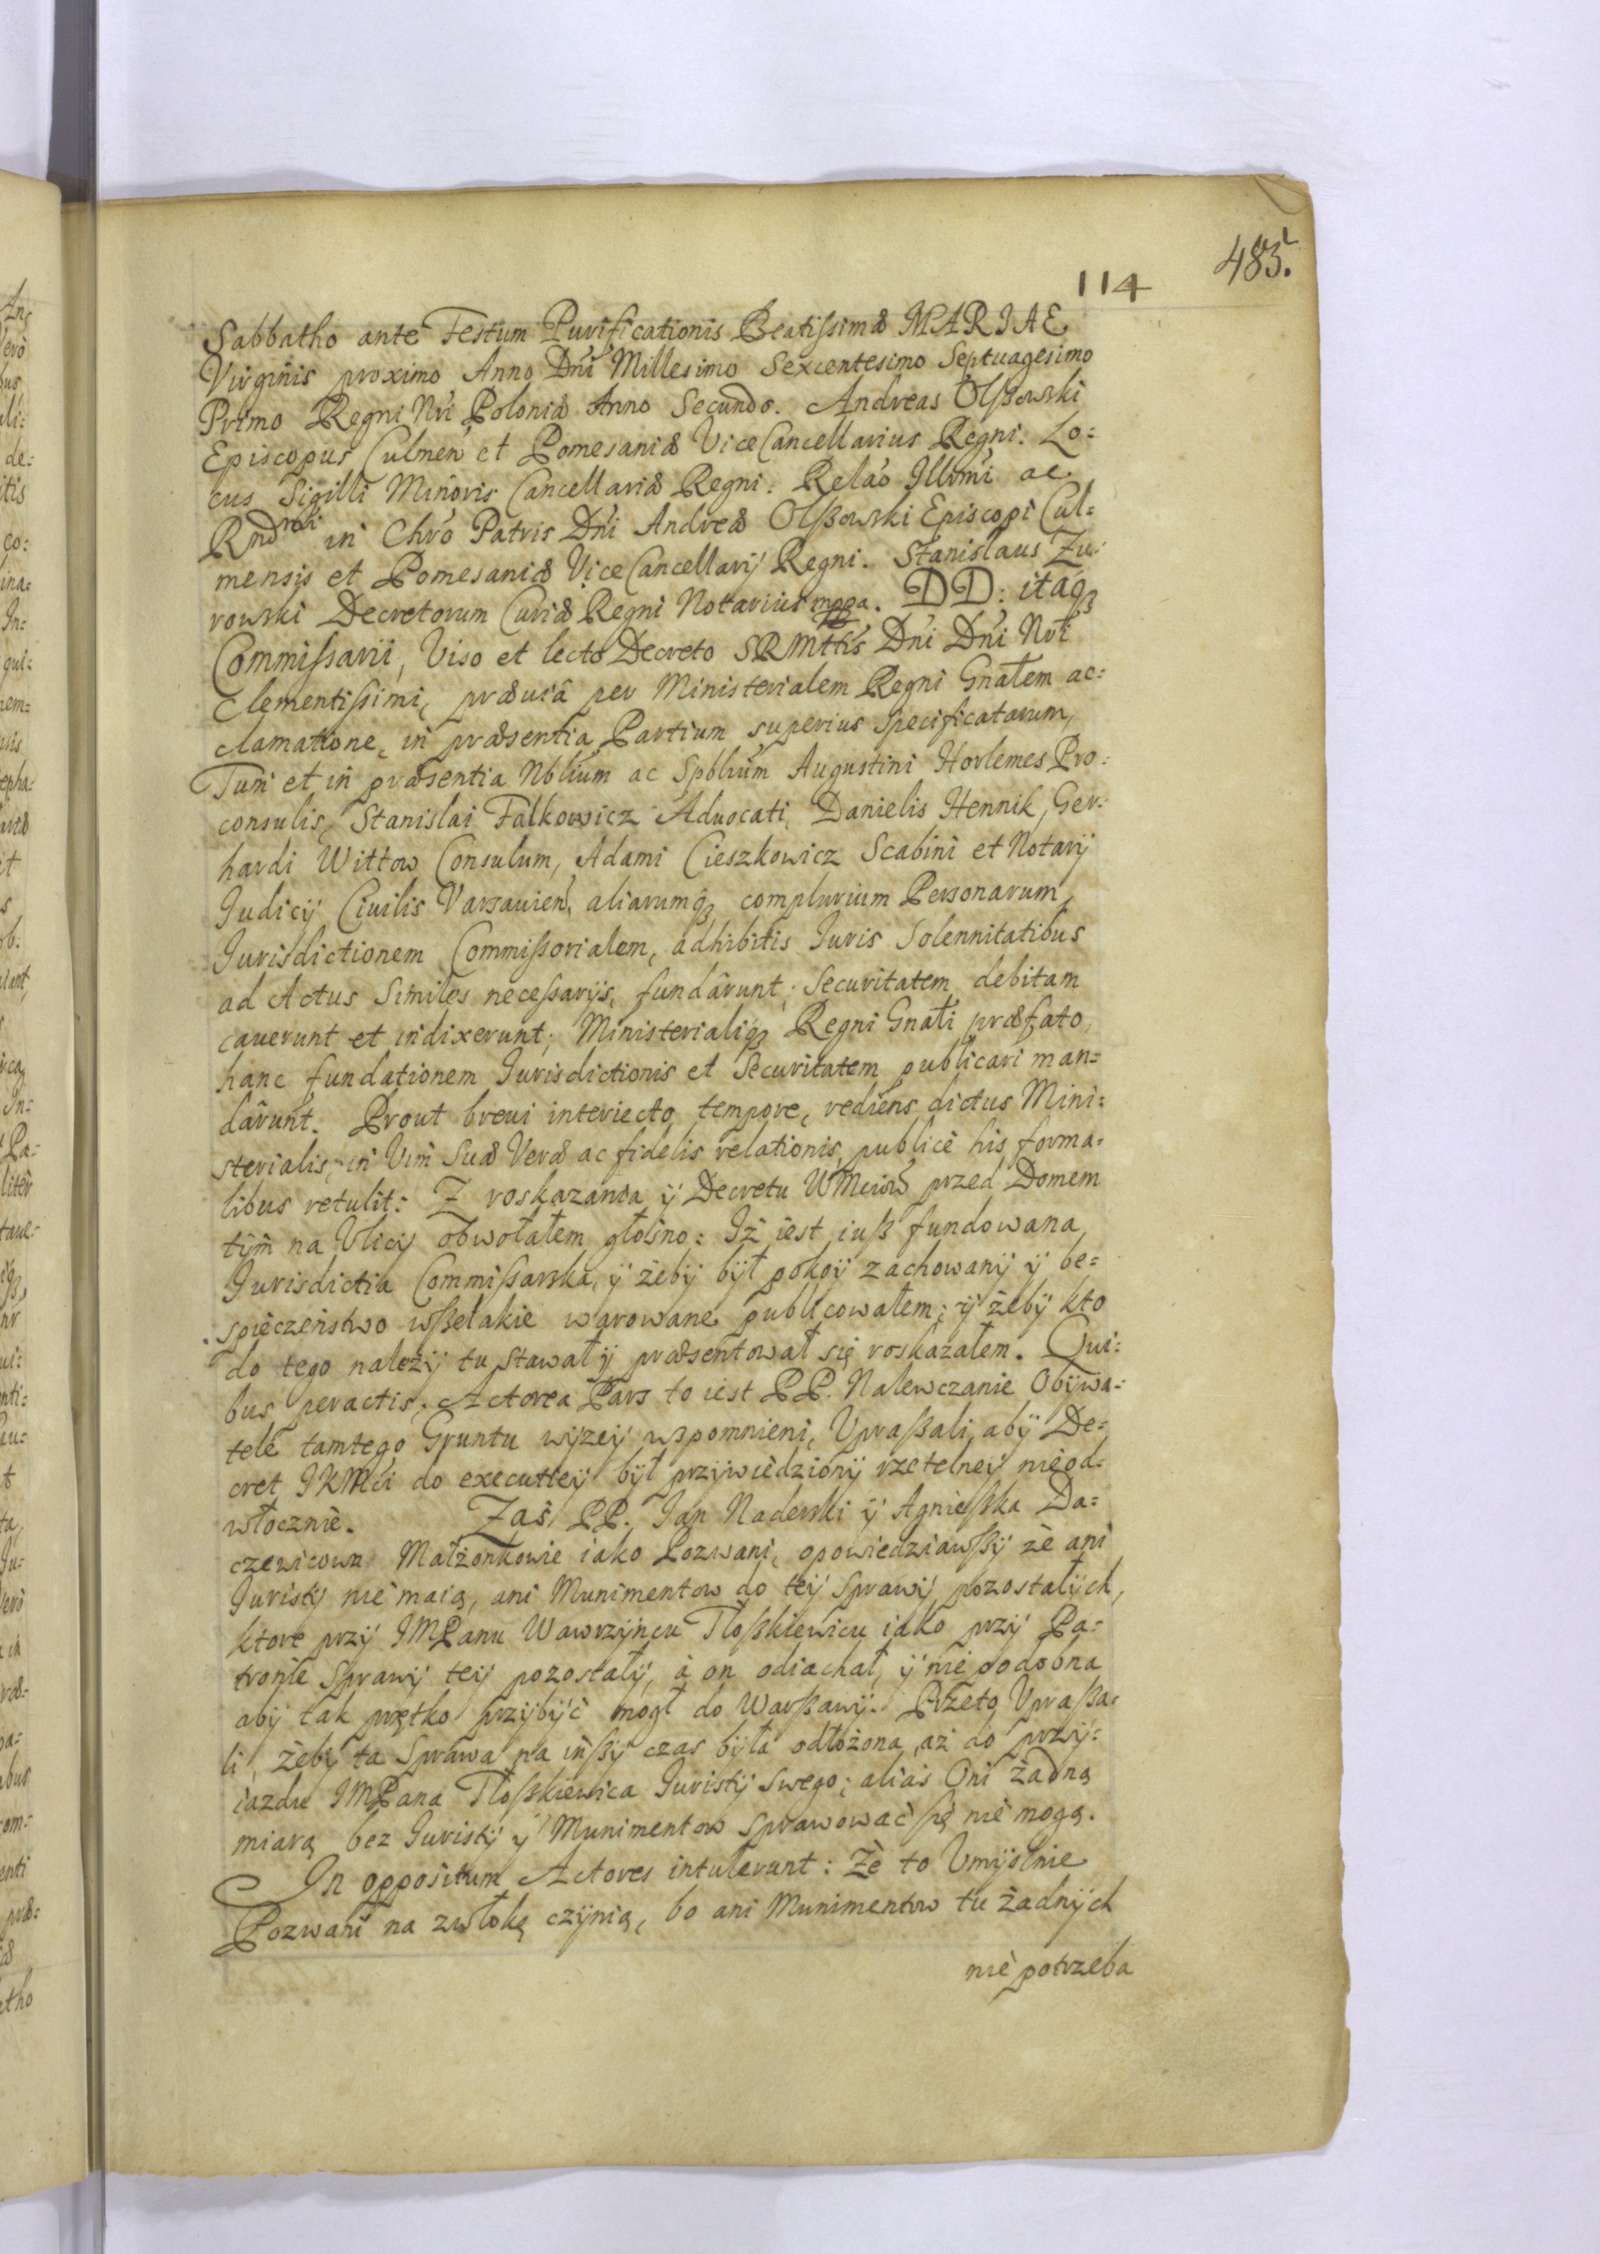 485.
114
Sabbatho ante Festum Purificationis Beatißimæ MARIAE
Virginis proximo Anno Dni Millesimo Sexcentesimo Septuagesimo
Primo Regni Nri Poloniæ Anno Secundo. Andreas Olßowski
Episcopus Culmeń et Pomesaniæ ViceCancellarius Regni. Lo:
cus Sigilli Minoris Cancellariæ Regni. Relaó Illrmi ac
Rndmi in Chró Patris Dńi Andreæ Olßowski Episcopi Cul:
mensis et Pomesaniæ ViceCancellarij Regni. Stanislaus Żu:
rowski Decretorum Curiæ Regni Notarius mppa. DD: itaq̨
Commißarii, Viso et lecto Decreto SRMttis Dńi Dńi Nri
Clementißimi, præuiâ per Ministerialem Regni Gnałem ac:
clamatione, in præsentia Partium superius specificatarum,
Tum et in præsentia Nblium ac Spblium Augustini Horlemes Pro:
consulis, Stanislai Falkowicz Aduocati, Danielis Hennik, Ger:
hardi Wittow Consulum, Adami Cieszkowicz Scabini et Notarij
Judicij Ciuilis Varsauień, aliarumq̨ complurium Personarum,
Iurisdictionem Commißorialem, adhibitis Iuris Solennitatibus
ad Actus Similes neceßarijs, fundârunt; Securitatem debitam
cauerunt et indixerunt; Ministerialiq̨ Regni Gnałi præfato,
hanc fundationem Iurisdictionis et Securitatem publicari man:
dârunt. Prout breui interiecto tempore, rediens dictus Mini:
sterialis, in Vim Suæ Veræ ac fidelis relationis, publicè his forma:
libus retulit: Z roskazania ÿ Decretu WMciów przed Domem
tÿm na Vlicÿ obwołałem głośno: Iż iest iuß fundowana
Iurisdictia Commißarska, ÿ żebÿ bÿł pokoÿ zachowanÿ ÿ be:
spieczenstwo wßelakie warowane publicowałem; ÿ żebÿ kto
do tego należÿ tu stawał ÿ præsentował się roskazałem. Qui:
bus peractis, Actorea Pars to iest PP. Nalewczanie Obÿwa:
tele tamtego Gruntu wÿzeÿ wspomnieni, Vpraßali, abÿ De:
cret IKMći do executieÿ bÿł przÿwiedzionÿ rzetelneÿ nieod:
włocznie. Zaś PP. Jan Naderski ÿ Agnießka Da:
czewicowa Małżonkowie iako Pozwani, opowiedziawßÿ że ani
Iuristÿ nie maią, ani Munimentow do teÿ Sprawÿ pozostałÿch,
ktore przÿ IMPanu Wawrzÿncu Tłoßkiewicu iako przÿ Pa:
tronie Sprawÿ teÿ pozostałÿ, à on odiachał, ÿ nie podobna
abÿ tak prętko przÿbÿć mogł do Warßawÿ. Przeto Vpraßa:
li, żebÿ ta Sprawa na inßÿ czas bÿła odłożona, aż do przÿ:
iazdu IMPana Tłoßkiewica Iuristÿ swego; aliàs Oni żadną
miarą bez Iuristÿ ÿ Munimentow sprawować się nie mogą.
In oppositum Actores intulerunt: Że to Vmÿslnie
Pozwani na zwłokę czÿnią, bo ani Munimentow tu żadnÿch
nie potrzeba